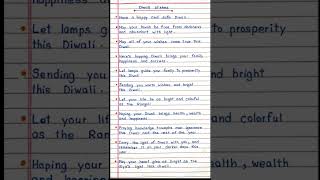 Diwali Wishes
Have a happy and safe Diwali.
May your house be free from darkness
and abundant with light.
May all of your wishes come true this
Diwali.
Here's hoping Diwali brings your family
happiness and success.
Let lamps guide your family to prosperity
this Diwali.
Sending you warm wishes and bright
this Diwali.
Let your life be as bright and colorful
as the Rangoli.
Hoping your Diwali brings health, wealth
and happiness.
Praying Knowledge triumphs over ignorance
this Diwali and the rest of the year.
Carry the light of Diwali with you, and
remember it on your darker days
May your heart glow as bright as the
diya's light this Diwali.
Let lamps
this Diwali.
Sending you
this Diwali.
Let your life
as the Ran
Hoping your
to prosperity
bright
and colorful
ealth, wealth